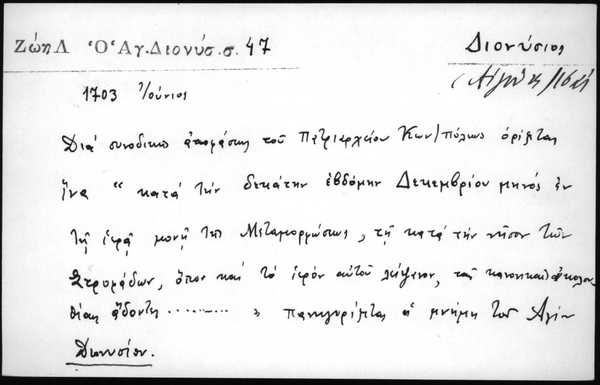 Ζώη Λ Ὁ Ἁγ. Διονύσ. σ. 47
Διονύσιος
1703 Ἰούνιος
Διά συνοδικῆς ἀποφάσεως τοῦ Πατριαρχείου Κων/πόλεως ὁρίζεται
ἵνα "κατά τήν δεκάτην ἑβδόμην Δεκεμβρίου μηνός ἐν
τῇ ἱερᾷ μονῇ τῆς Μεταμορφώσεως, τῇ κατά τήν νῆσον τῶν
Στροφάδων, ὅπου καί τό ἱερόν αὐτοῦ λείψανον, τάς κανονικάς ἀκολου
θίας ᾄδοντες .......... " πανηγυρίζεται ἡ μνήμη τοῦ Ἁγίου
Διονυσίου.